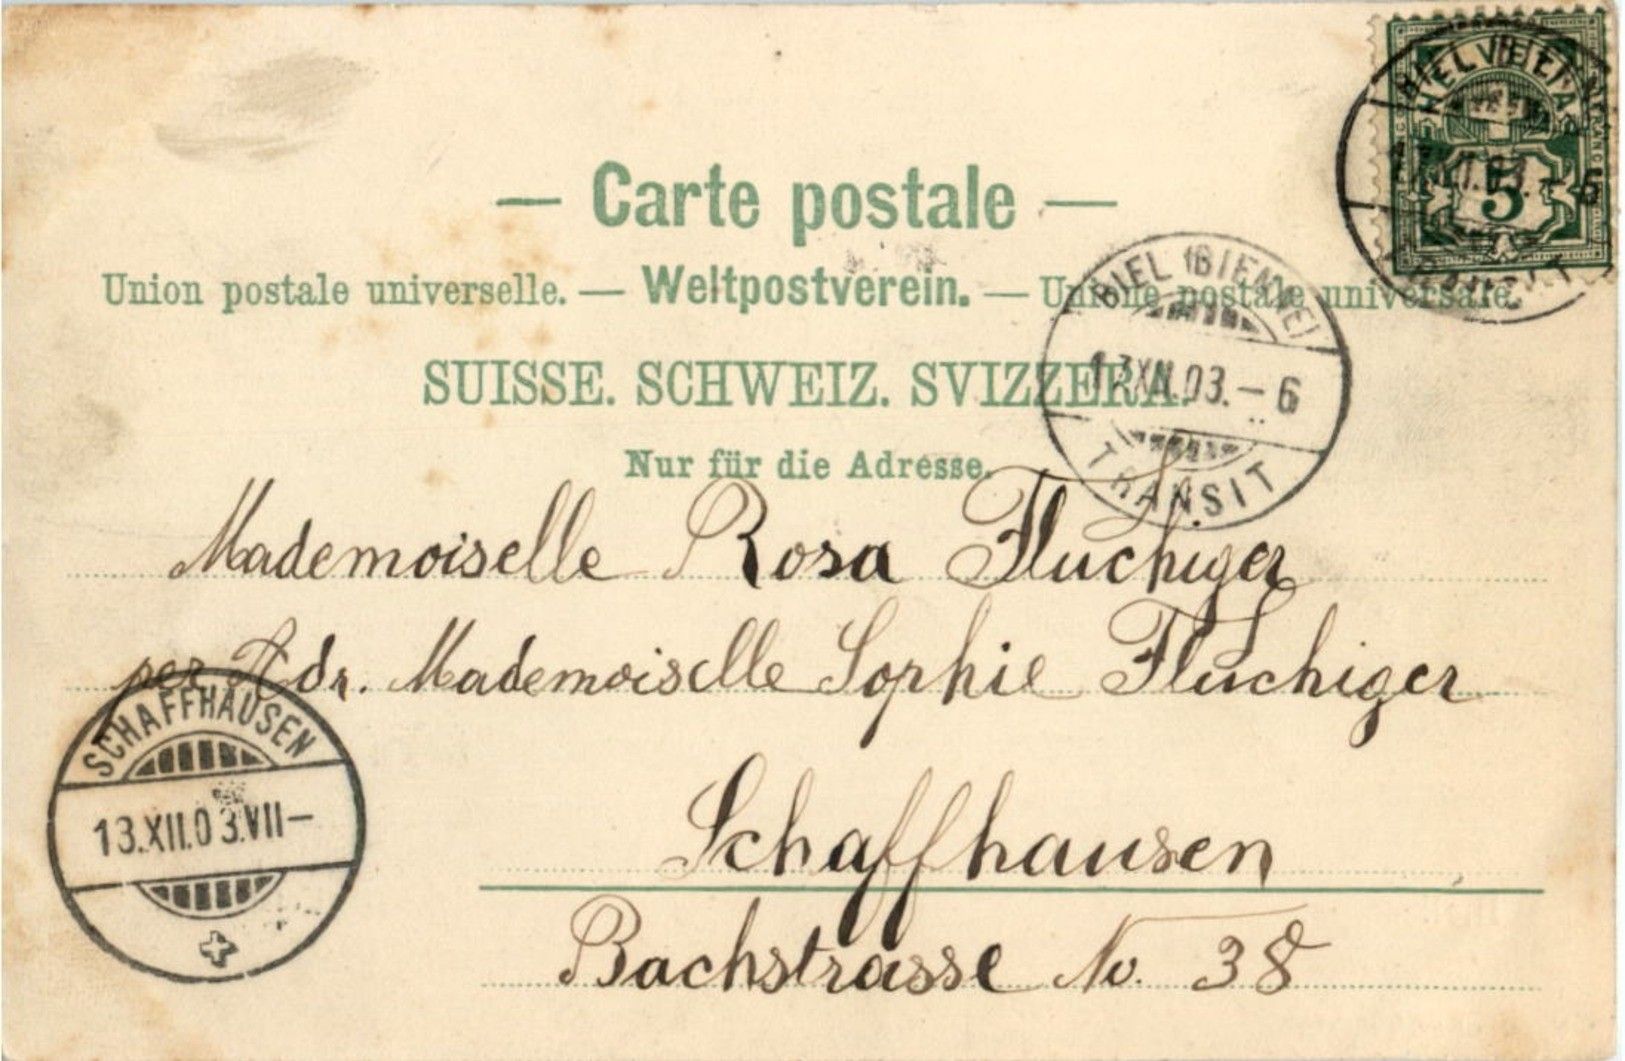 HELVETIA
FRANCO
5
— Carte postale —
Union postale universelle. — Weltpostverein. — Unione postale universale.
BIEL (BIENNE)
13.XII.03.–6
TRANSIT
SUISSE. SCHWEIZ. SVIZZERA.
Nur für die Adresse.
Mademoiselle Rosa Fluchiger
per Adr. Mademoiselle Sophie Flüchiger
SCHAFFHAUSEN
13.XII.03.VII–
Schaffhausen
Bachstrasse No. 38